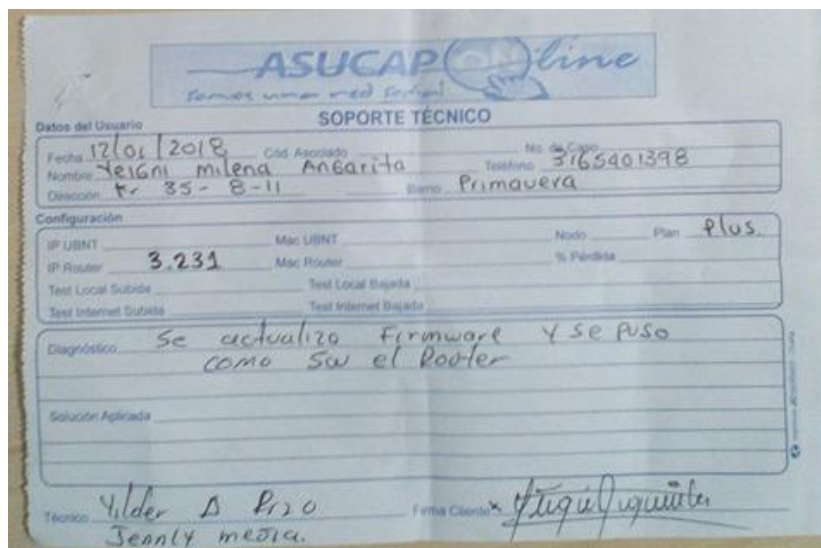 ASUCAP ONline
Somos una red social
SOPORTE TÉCNICO
Datos del Usuario
Fecha 12/01/2018 Cód Asociado No. de Caso
Nombre Yeigni milena Angarita Teléfono 3165401398
Dirección Kr 35-8-11 Barrio Primavera
Configuración
IP UBNT Mac UBNT Nodo Plan Plus.
IP Router 3.231 Mac Router % Pérdida
Test Local Subida Test Local Bajada
Test Internet Subida Test Internet Bajada
Diagnóstico Se actualizo Firmware Y se puso
como SW el Router
Solución Aplicada
Técnico Yilder A Pizo Firma Cliente
Jennly mejia.